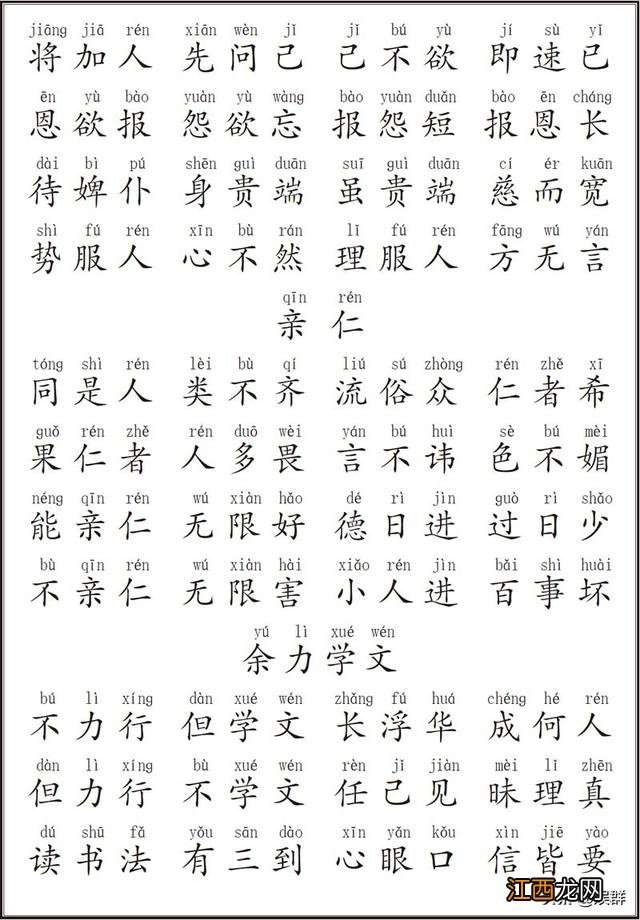 jiāng jiā rén xiān wèn jǐ jǐ bú yù jí sù yǐ
将加人 先问己 己不欲 即速已
ēn yù bào yuàn yù wàng bào yuàn duǎn bào ēn cháng
恩欲报 怨欲忘 报怨短 报恩长
dài bì pú shēn guì duān suī guì duān cí ér kuān
待婢仆 身贵端 虽贵端 慈而宽
shì fú rén xīn bù rán lǐ fú rén fāng wú yán
势服人 心不然 理服人 方无言
qīn rén
亲仁
tóng shì rén lèi bù qí liú sú zhòng rén zhě xī
同是人 类不齐 流俗众 仁者希
guǒ rén zhě rén duō wèi yán bú huì sè bú mèi
果仁者 人多畏 言不讳 色不媚
néng qīn rén wú xiàn hǎo dé rì jìn guò rì shǎo
能亲仁 无限好 德日进 过日少
bù qīn rén wú xiàn hài xiǎo rén jìn bǎi shì huài
不亲仁 无限害 小人进 百事坏
yú lì xué wén
余力学文
bú lì xíng dàn xué wén zhǎng fú huá chéng hé rén
不力行 但学文 长浮华 成何人
dàn lì xíng bù xué wén rèn jǐ jiàn mèi lǐ zhēn
但力行 不学文 任己见 昧理真
dú shū fǎ yǒu sān dào xīn yǎn kǒu xìn jiē yào
读书法 有三到 心眼口 信皆要
江西龙网